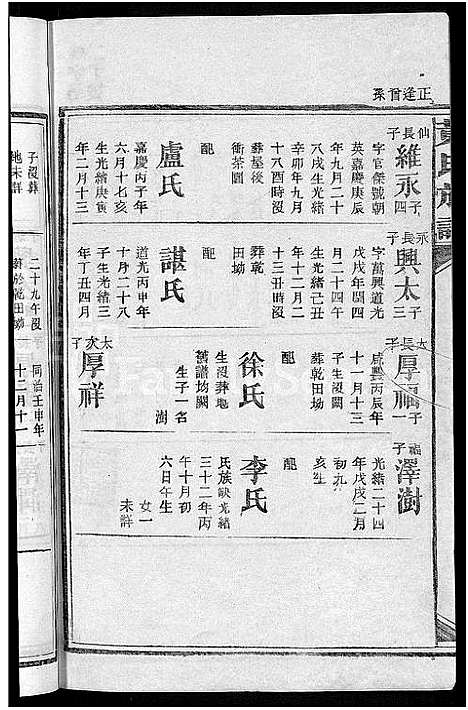 正逢曾孫
黃氏族譜
仙長子
維永
子四
字官傑號朝
英嘉慶庚辰
年九月二十
八戌生光緒
辛卯年九月
十八酉時沒
葬屋後
衝茶園
配
盧氏
嘉慶丙子年
六月十七亥
生光緒庚寅
年二月十三
永長子
興太
子三
字萬興道光
戊戌年閏四
月二十四午
生光緒己丑
十三丑時沒
葬乾
田坳
配
諶氏
道光丙申年
十月二十八
子生光緒三
年丁丑四月
二十九午沒
葬於乾田坳
太長子
厚福
子一
咸豐丙辰年
十一月十三
子生沒闕
葬乾田坳
配
徐氏
生沒葬地
舊譜均闕
生子一名
澍
太次子
厚祥
同治壬申年
十二月十一
福子
澤澍
光緒二十四
年戊戌二月
初九
亥生
配
李氏
氏族缺光緒
三十二年丙
午十月初
六日午生
女一
未詳
子沒葬
地未詳